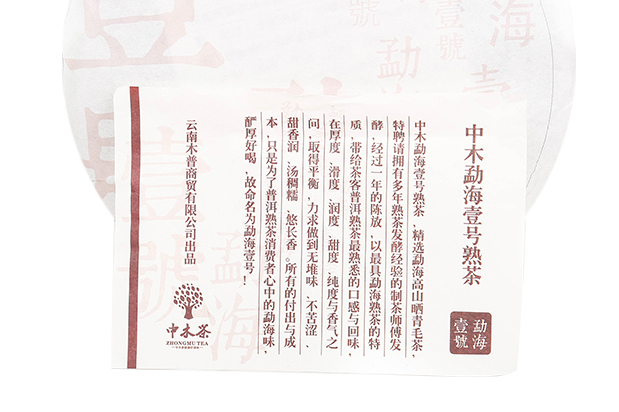 中木勐海壹号熟茶
中木勐海壹号熟茶，精选勐海高山晒青毛茶，
特聘请拥有多年熟茶发酵经验的制茶师傅发
酵，经过一年的陈放，以最具勐海熟茶的特
质，带给茶客普洱熟茶最熟悉的口感与回味，
在厚度、滑度、润度、甜度、纯度与香气之
间，取得平衡，力求做到无堆味、不苦涩、
甜香润、汤稠糯、悠长香。所有的付出与成
本，只是为了普洱熟茶消费者心中的勐海味，
酽厚好喝，故命名为勐海壹号！
云南木普商贸有限公司出品
勐海
壹號
中木茶
ZHONGMU TEA
壹號
勐海
壹號
勐海
壹號
勐海